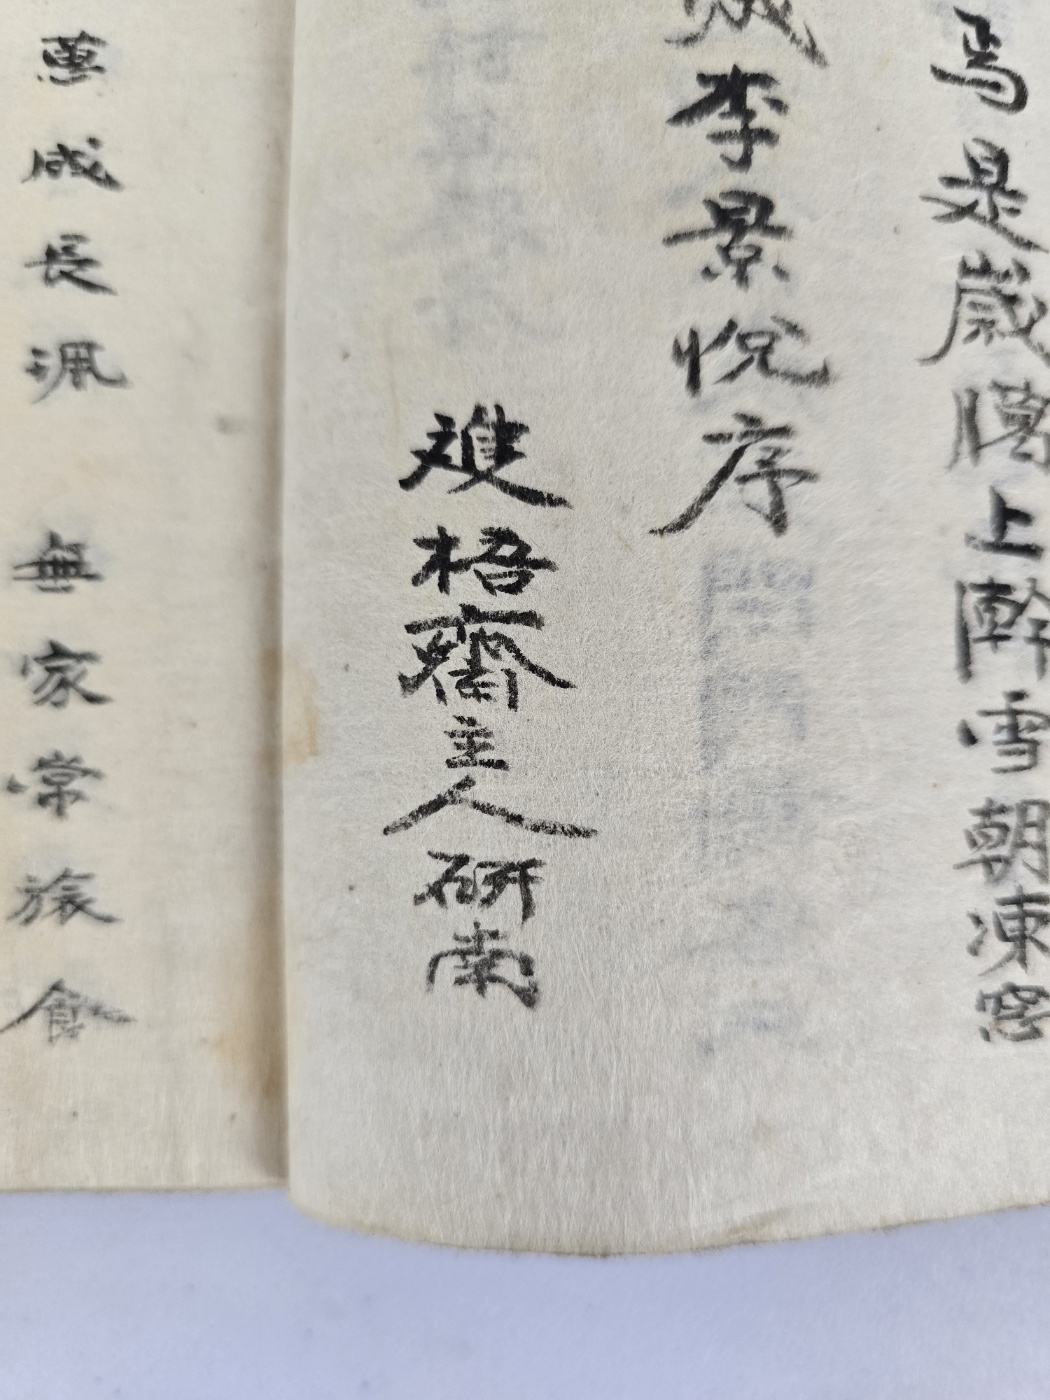 焉是歲臈上澣雪朝凍窓
李景悅序
梧齋主人研南
夢成長沠 無家常旅食